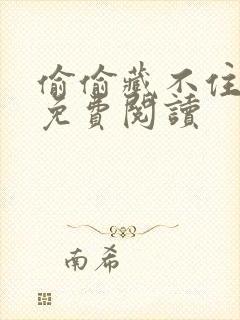 偷偷藏不住
免費閱讀
南希